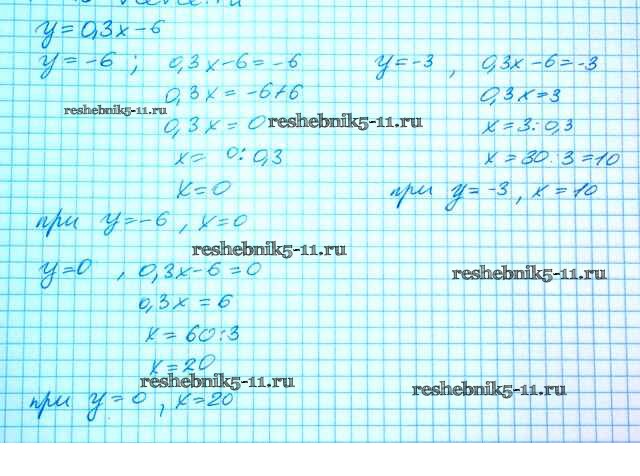 y = 0,3x - 6
y = -6 ; 0,3x - 6 = -6
0,3x = -6 + 6
reshebnik5-11.ru
0,3x = 0
x = 0 : 0,3
x = 0
при y = -6 , x = 0
y = -3 , 0,3x - 6 = -3
0,3x = 3
reshebnik5-11.ru
x = 3 : 0,3
x = 30 : 3 = 10
при y = -3 , x = 10
reshebnik5-11.ru
y = 0 , 0,3x - 6 = 0
reshebnik5-11.ru
0,3x = 6
x = 60 : 3
x = 20
reshebnik5-11.ru
reshebnik5-11.ru
при y = 0 , x = 20